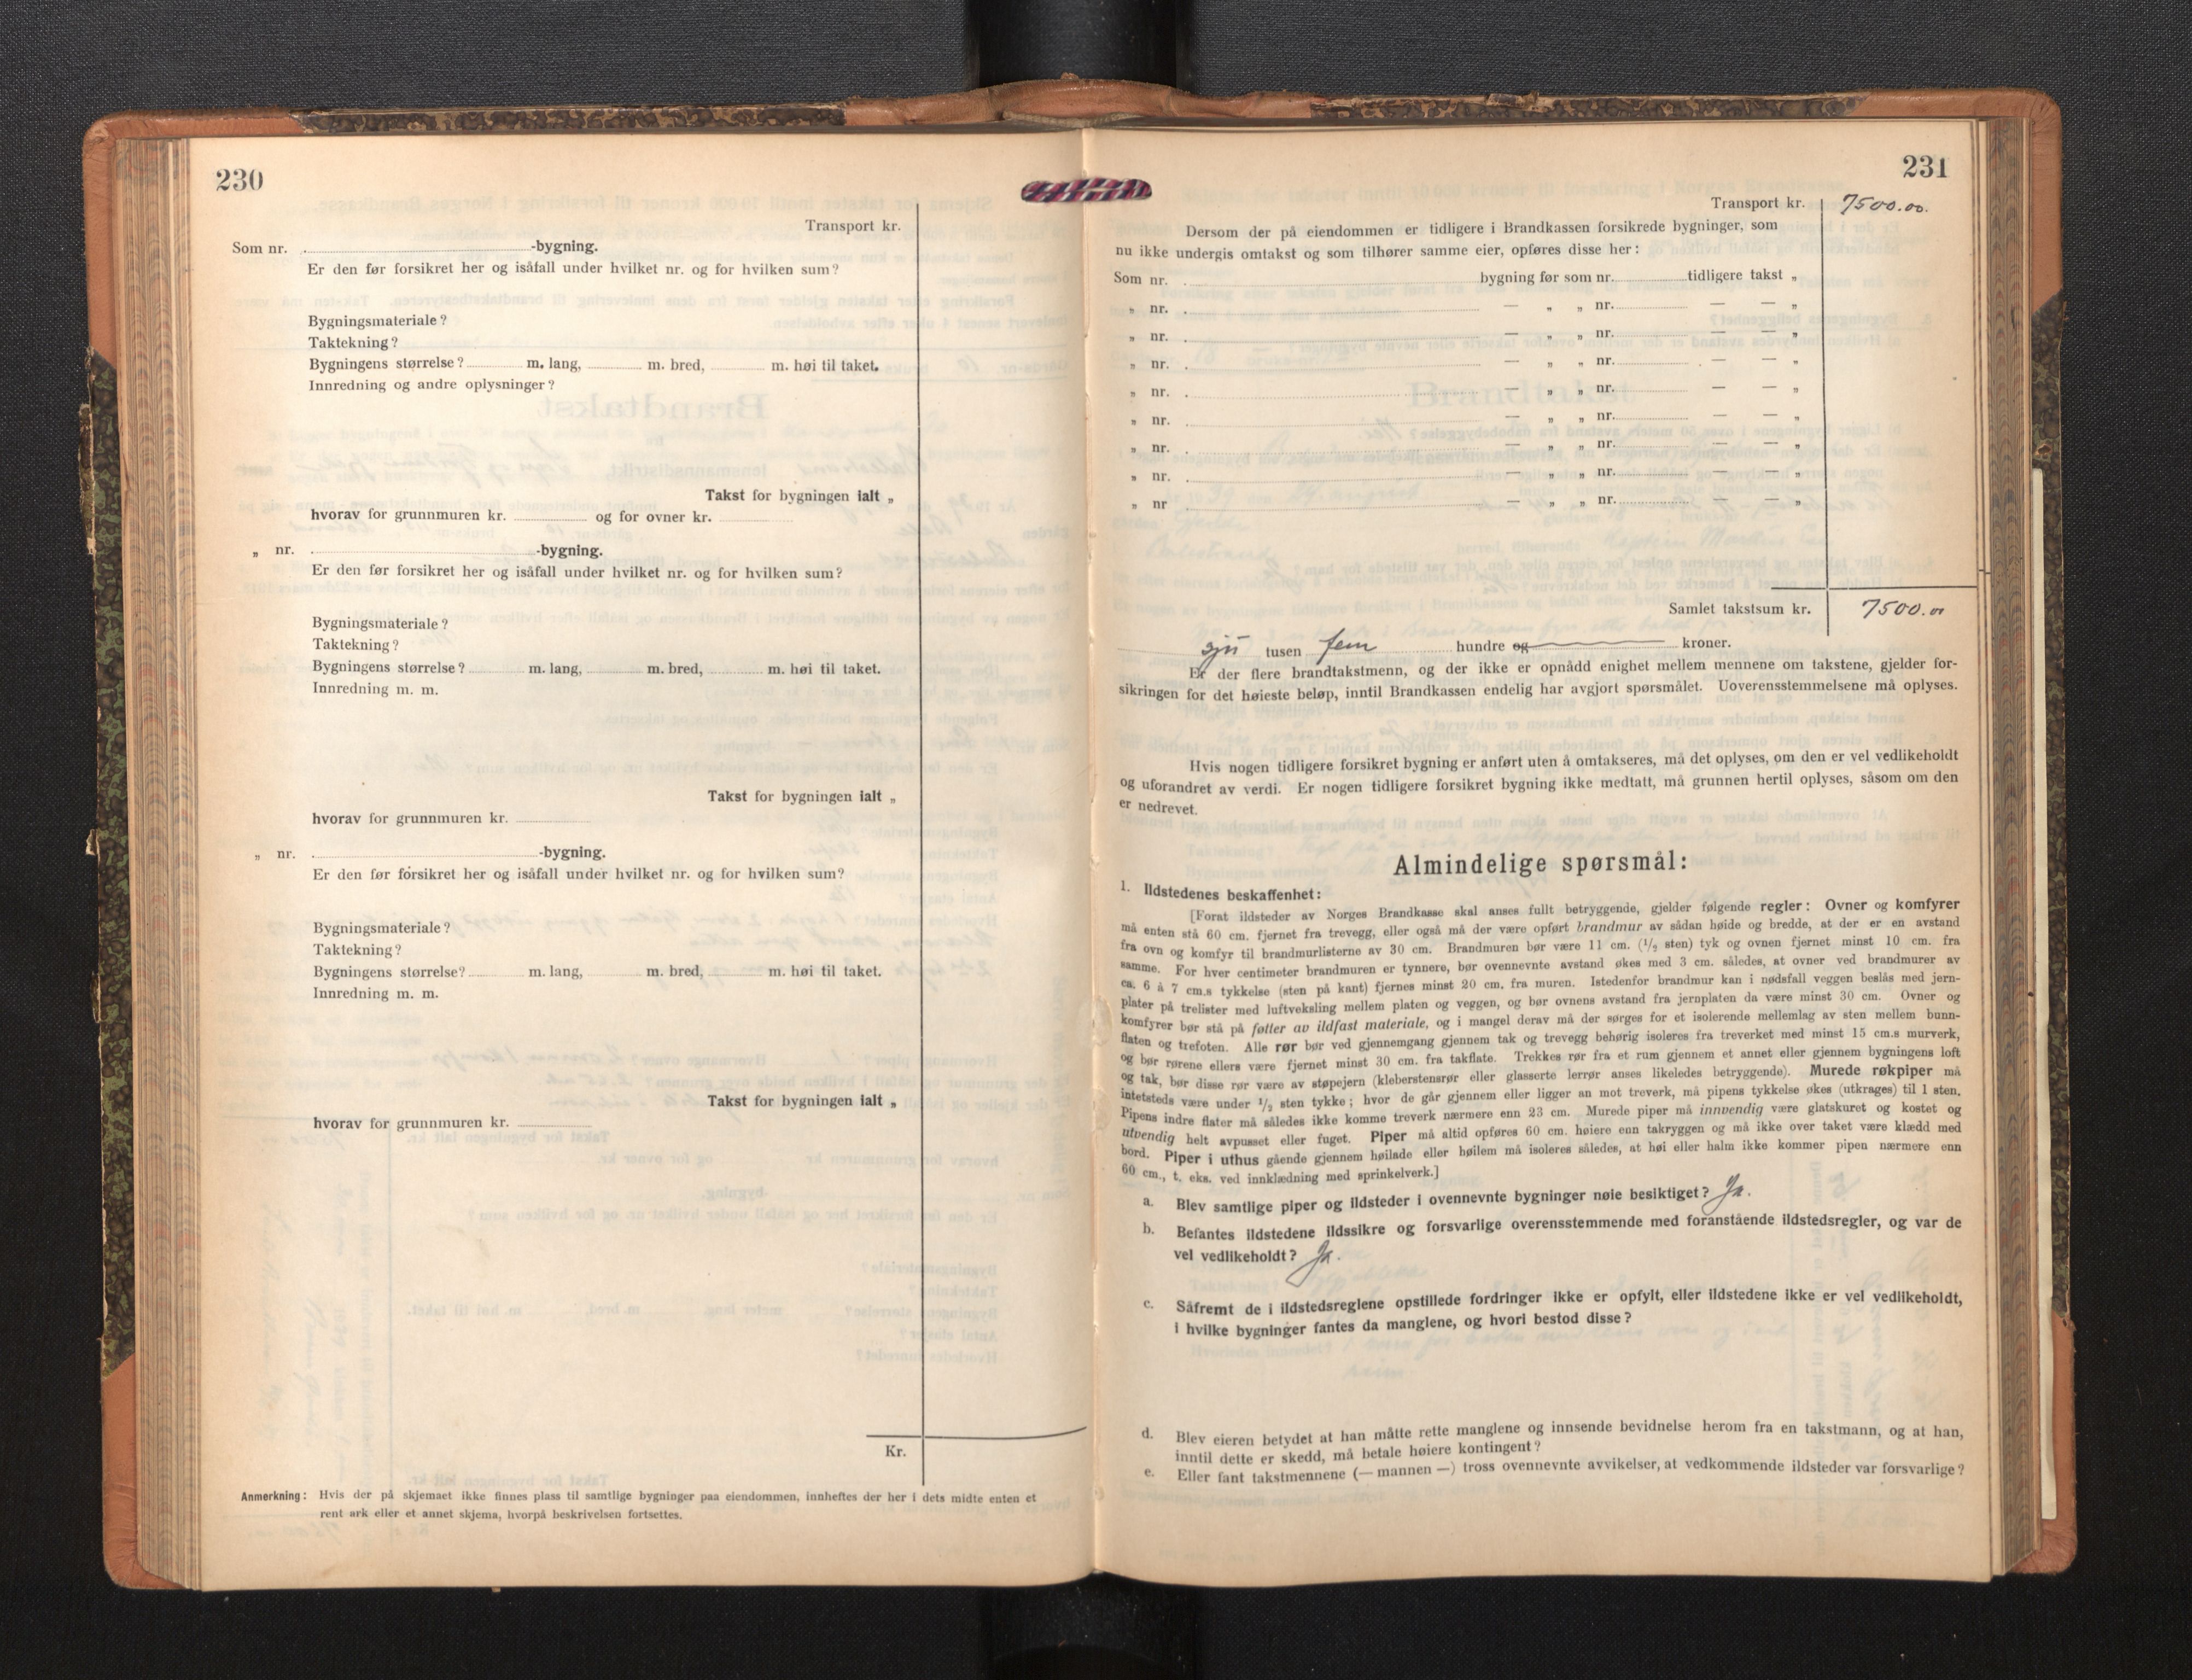 230
Transport kr.
Som nr. -bygning.
Er den før forsikret her og isåfall under hvilket nr. og for hvilken sum?
Bygningsmateriale?
Taktekning?
Bygningens størrelse? m. lang, m. bred, m. høi til taket.
Innredning og andre oplysninger?
Takst for bygningen ialt „
hvorav for grunnmuren kr. og for ovner kr.
„ nr. -bygning.
Er den før forsikret her og isåfall under hvilket nr. og for hvilken sum?
Bygningsmateriale?
Taktekning?
Bygningens størrelse? m. lang, m. bred, m. høi til taket.
Innredning m. m.
Takst for bygningen ialt „
hvorav for grunnmuren kr.
„ nr. -bygning.
Er den før forsikret her og isåfall under hvilket nr. og for hvilken sum?
Bygningsmateriale?
Taktekning?
Bygningens størrelse? m. lang, m. bred, m. høi til taket.
Innredning m. m.
Takst for bygningen ialt „
hvorav for grunnmuren kr.
Kr.
Anmerkning: Hvis der på skjemaet ikke finnes plass til samtlige bygninger paa eiendommen, innheftes der her i dets midte enten et
rent ark eller et annet skjema, hvorpå beskrivelsen fortsettes.
231
Transport kr. 7500.00.
Dersom der på eiendommen er tidligere i Brandkassen forsikrede bygninger, som
nu ikke undergis omtakst og som tilhører samme eier, opføres disse her:
Som nr. bygning før som nr. tidligere takst „
„ nr. — „ „ nr. — — „
„ nr. — „ „ nr. — — „
„ nr. — „ „ nr. — — „
„ nr. — „ „ nr. — — „
„ nr. — „ „ nr. — — „
„ nr. — „ „ nr. — — „
„ nr. — „ „ nr. — — „
„ nr — „ „ nr. — — „
Samlet takstsum kr. 7500.00
sju tusen fem hundre og kroner.
Er der flere brandtakstmenn, og der ikke er opnådd enighet mellem mennene om takstene, gjelder for-
sikringen for det høieste beløp, inntil Brandkassen endelig har avgjort spørsmålet. Uoverensstemmelsene må oplyses.
Hvis nogen tidligere forsikret bygning er anført uten å omtakseres, må det oplyses, om den er vel vedlikeholdt
og uforandret av verdi. Er nogen tidligere forsikret bygning ikke medtatt, må grunnen hertil oplyses, såsom om den
er nedrevet.
Almindelige spørsmål:
1. Ildstedenes beskaffenhet:
[Forat ildsteder av Norges Brandkasse skal anses fullt betryggende, gjelder følgende regler: Ovner og komfyrer
må enten stå 60 cm. fjernet fra trevegg, eller også må der være opført brandmur av sådan høide og bredde, at der er en avstand
fra ovn og komfyr til brandmurlisterne av 30 cm. Brandmuren bør være 11 cm. (1/2 sten) tyk og ovnen fjernet minst 10 cm. fra
samme. For hver centimeter brandmuren er tynnere, bør ovennevnte avstand økes med 3 cm. således, at ovner ved brandmurer av
ca. 6 à 7 cm.s tykkelse (sten på kant) fjernes minst 20 cm. fra muren. Istedenfor brandmur kan i nødsfall veggen beslås med jern-
plater på trelister med luftveksling mellem platen og veggen, og bør ovnens avstand fra jernplaten da være minst 30 cm. Ovner og
komfyrer bør stå på føtter av ildfast materiale, og i mangel derav må der sørges for et isolerende mellemlag av sten mellem bunn-
flaten og trefoten. Alle rør bør ved gjennemgang gjennem tak og trevegg behørig isoleres fra treverket med minst 15 cm.s murverk,
og bør rørene ellers være fjernet minst 30 cm. fra takflate. Trekkes rør fra et rum gjennem et annet eller gjennem bygningens loft
og tak, bør disse rør være av støpejern (kleberstensrør eller glasserte lerrør anses likeledes betryggende). Murede røkpiper må
intetsteds være under 1/2 sten tykke; hvor de går gjennem eller ligger an mot treverk, må pipens tykkelse økes (utkrages) til 1 sten.
Pipens indre flater må således ikke komme treverk nærmere enn 23 cm. Murede piper må innvendig være glatskuret og kostet og
utvendig helt avpusset eller fuget. Piper må altid opføres 60 cm. høiere enn takryggen og må ikke over taket være klædd med
bord. Piper i uthus gående gjennem høilade eller høilem må isoleres således, at høi eller halm ikke kommer pipen nærmere enn
60 cm., t. eks. ved innklædning med sprinkelverk.]
a. Blev samtlige piper og ildsteder i ovennevnte bygninger nøie besiktiget? Ja.
b. Befantes ildstedene ildssikre og forsvarlige overensstemmende med foranstående ildstedsregler, og var de
vel vedlikeholdt? Ja.
c. Såfremt de i ildstedsreglene opstillede fordringer ikke er opfylt, eller ildstedene ikke er vel vedlikeholdt,
i hvilke bygninger fantes da manglene, og hvori bestod disse?
d. Blev eieren betydet at han måtte rette manglene og innsende bevidnelse herom fra en takstmann, og at han,
inntil dette er skedd, må betale høiere kontingent?
e. Eller fant takstmennene (— mannen —) tross ovennevnte avvikelser, at vedkommende ildsteder var forsvarlige?